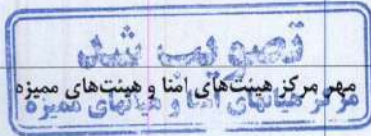 تصویب شد
مهر مرکز هیئت‌های امنا و هیئت‌های ممیزه
مرکز هیأتهای امنا و هیأتهای ممیزه